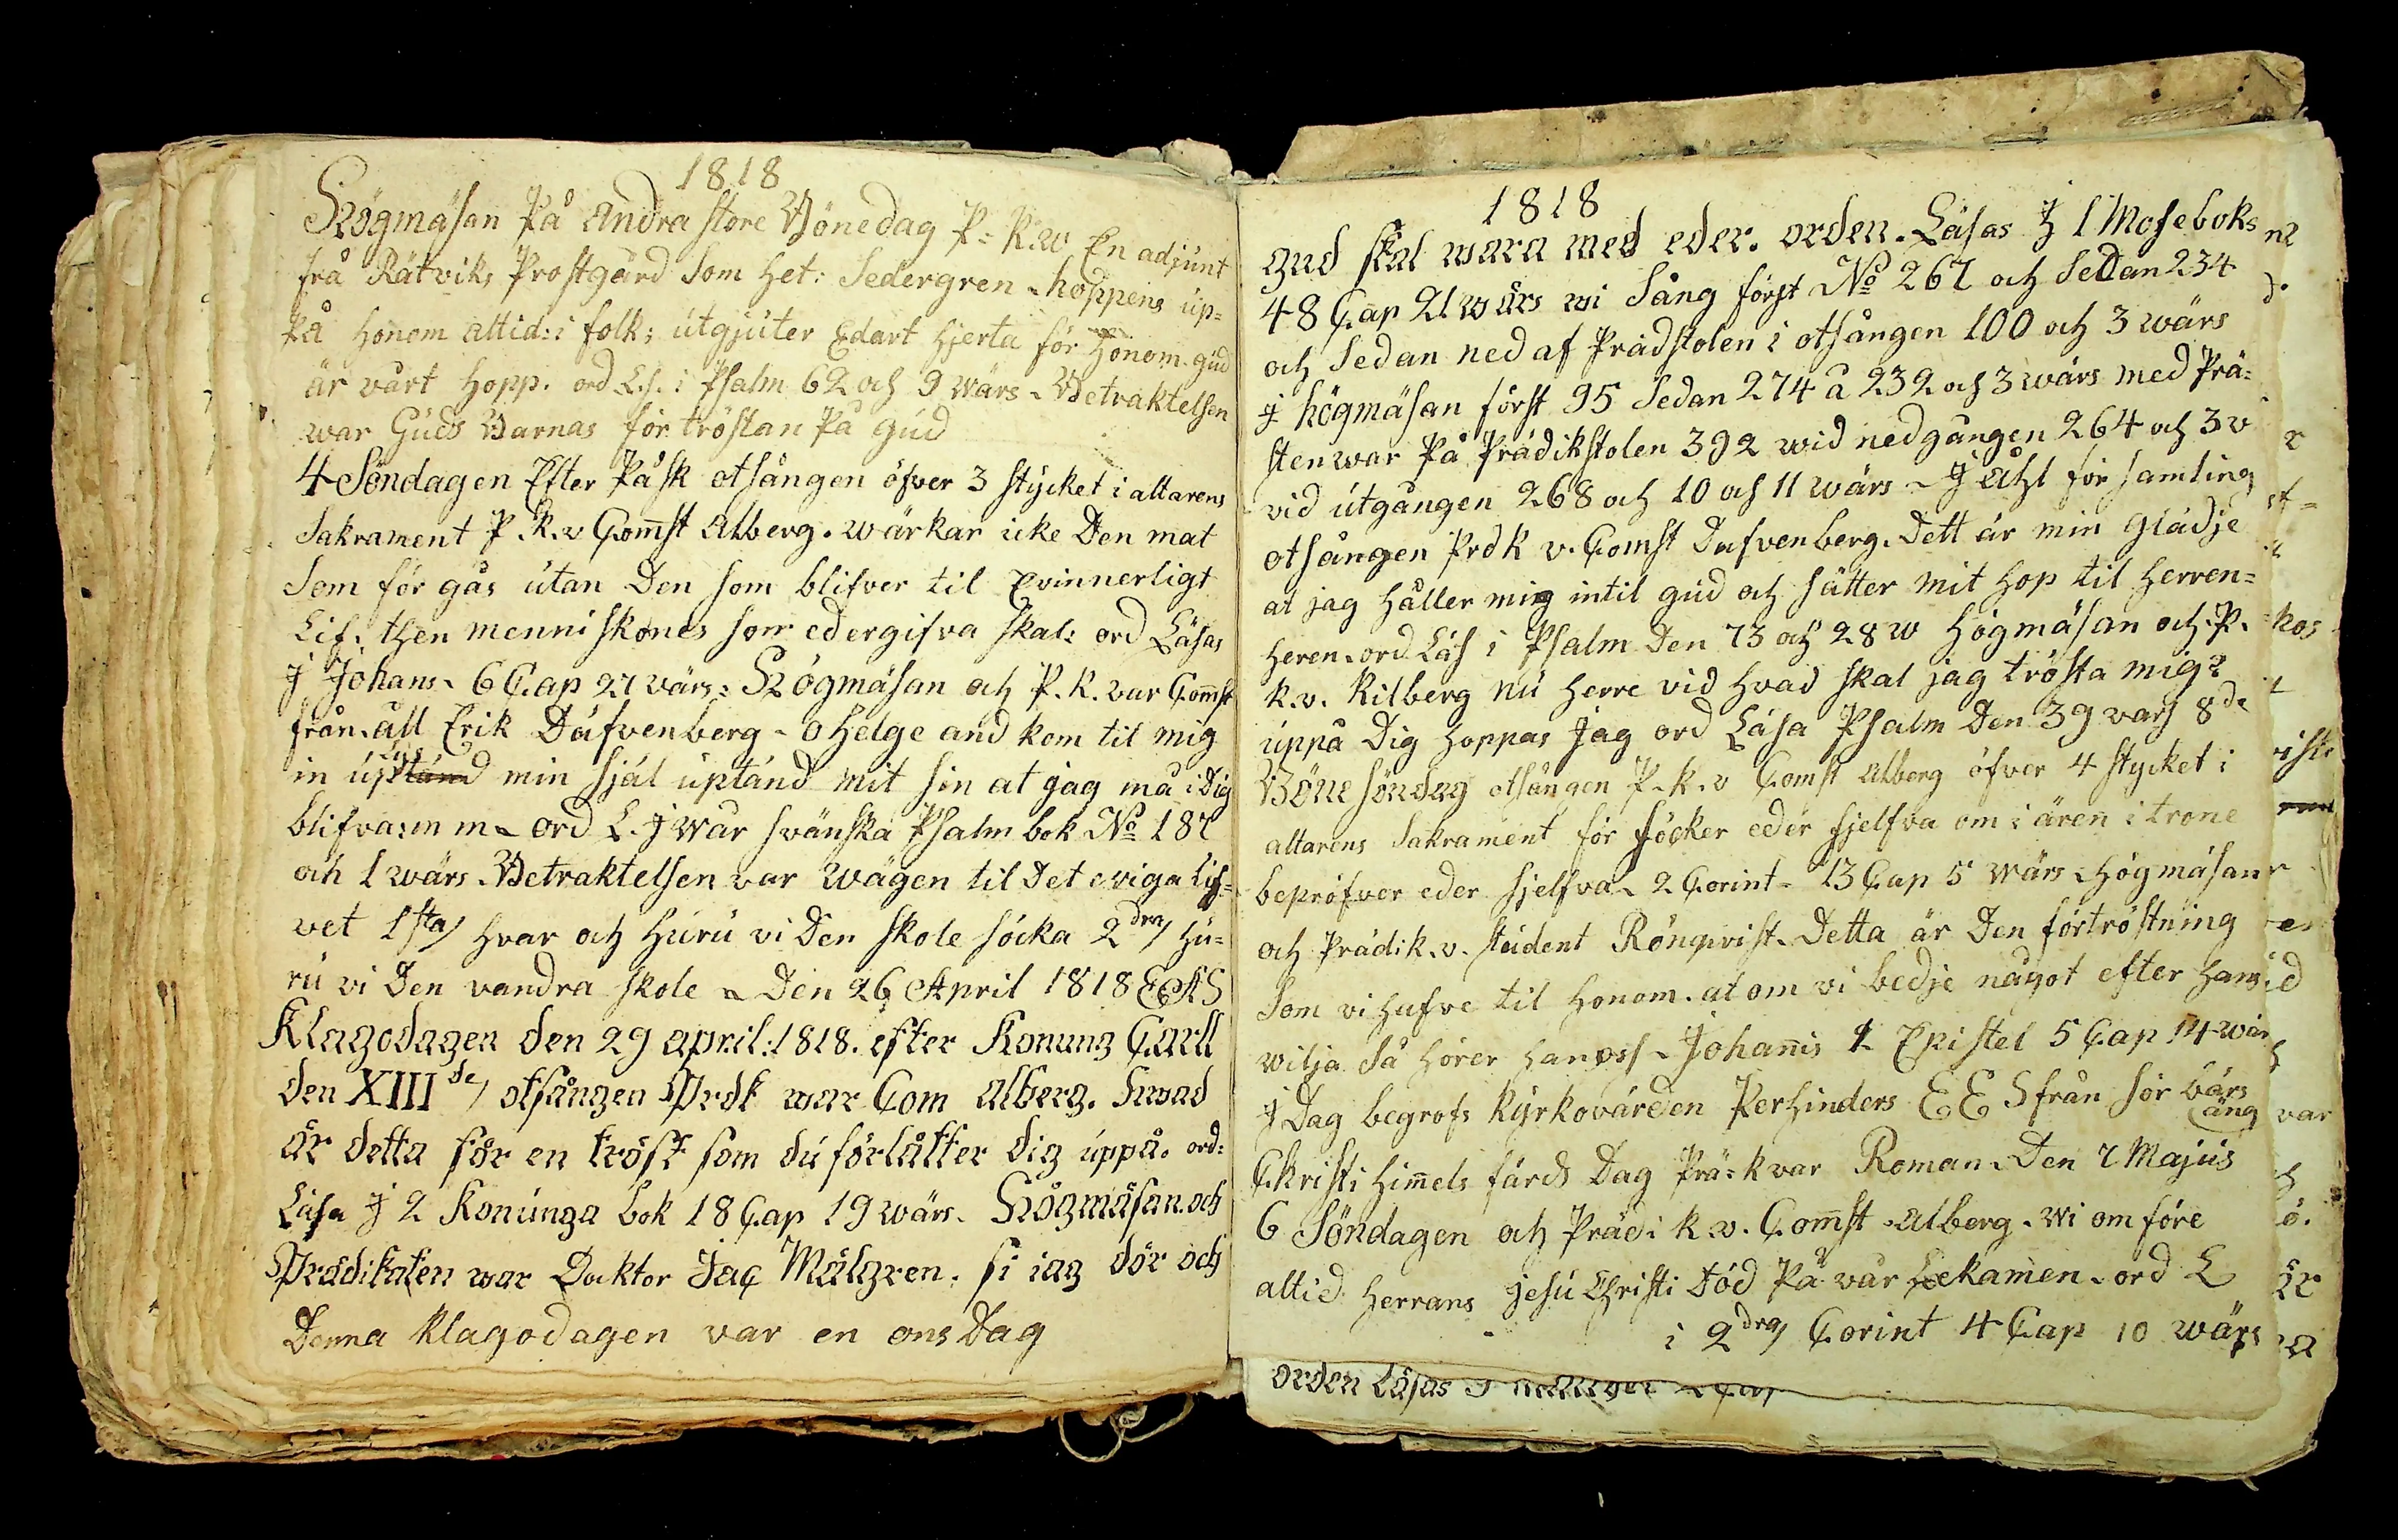 1818
Högmäsan På andra store Bönedag P=K.w En adjunt
frå Rätviks Prostgård Som het: Sedergren - hoppens up=
På honom altid: i folk: utgjuter Edart hjerta för honom. gud
är vårt hopp. ord L.s. i Psalm 62 och 9 wärs - Betraktelsen
war Guds Barnas för tröstan På gud
4 Söndagen Efter Påsk otsången öfver 3 stycket i altarens
Sakrament P.K.v Com̄st Alberg. wärkar icke Den mat
Som för gås utan Den som blifver til Evinnerligt
Lif. then menniskones son edergifva skal: ord Läsas
J Johans. 6 Cap 27 värs: Högmäsan och P.K. var Com̄st
från. åll Erik Dafvenberg - O helge and kom til mig
in uptänd lus min själ uptänd mit sin at jag må i Dig
blifva: m m - ord L. J wår svänska Psalm bok No 187
och 1 wärs. Betraktelsen var Wägen til Det eviga Lif=
vet 1sta/ hvar och huru vi Den skole söcka 2dra/ hu=
ru vi Den vandra skole - Den 26 April 1818 EEAS
Klagodagen den 29 april: 1818. efter Konung Carll
den XIIIde/ otsången Prdk war Com Alberg. Hwad
är detta för en tröst som du förlåtter dig uppå. ord:
Läsa J 2 Konunga bok 18 Cap 19 wärs. Högmäsan. och
Prädikaten war Docktor Jac Mälgren. si iag dör och
Denna Klagodagen var en ons Dag
1818
gud skal wara med eder. orden. Läsas J 1 Moseboks
48 Cap 21 wärs wi Sång först No 267 och Sedan 234
och Sedan ned af Prädstolen i otsången 100 och 3 wärs
J högmäsan först 95 Sedan 274 å 232 och 3 wärs med Prä=
sten war På Prädikstolen 392 wid nedgången 264 och 3 v
vid utgången 268 och 10 och 11 wärs - J Åhl för samling
otsången Prdk v. Comst Dafvenberg. Dett är min glädje
at jag håller mig intil gud och sätter mit hop til herren=
heren. ord Läs i Psalm Den 73 och 28 w Högmäsan och. P.
K.v. Rilberg nu herre vid hvad skal jag trösta mig?
uppå Dig hoppas Jag ord Läsa Psalm Den 39 värs 8de
Böne söndag otsången P.K.v Comst Alberg öfver 4 stycket i
altarens Sakrament för söcker eder sjelfva om i ären i trone
bepröfver eder sjelfva - 2 Corint - 13 Cap 5 wärs - Högmäsan
och Prädik.v. student Rönqvist. Detta är Den förtröstning
Som vi hafve til honom. at om vi bedje något efter hans
wilja Så hörer han oss - Johan̄is 1 Epistel 5 Cap 14 wärs
J Dag begrofs Kyrkovärden Perhinders EES från sör bärs
äng
Christi him̄els färds Dag Prä=k var Roman. Den 7 Majus
6 Söndagen och Prädi k.v. Com̄st Alberg. wi om före
altid herrans Jesu Christi Död På vår Lekamen. ord L
i 2dra/ Corint 4 Cap 10 wärs
orden Läsas J